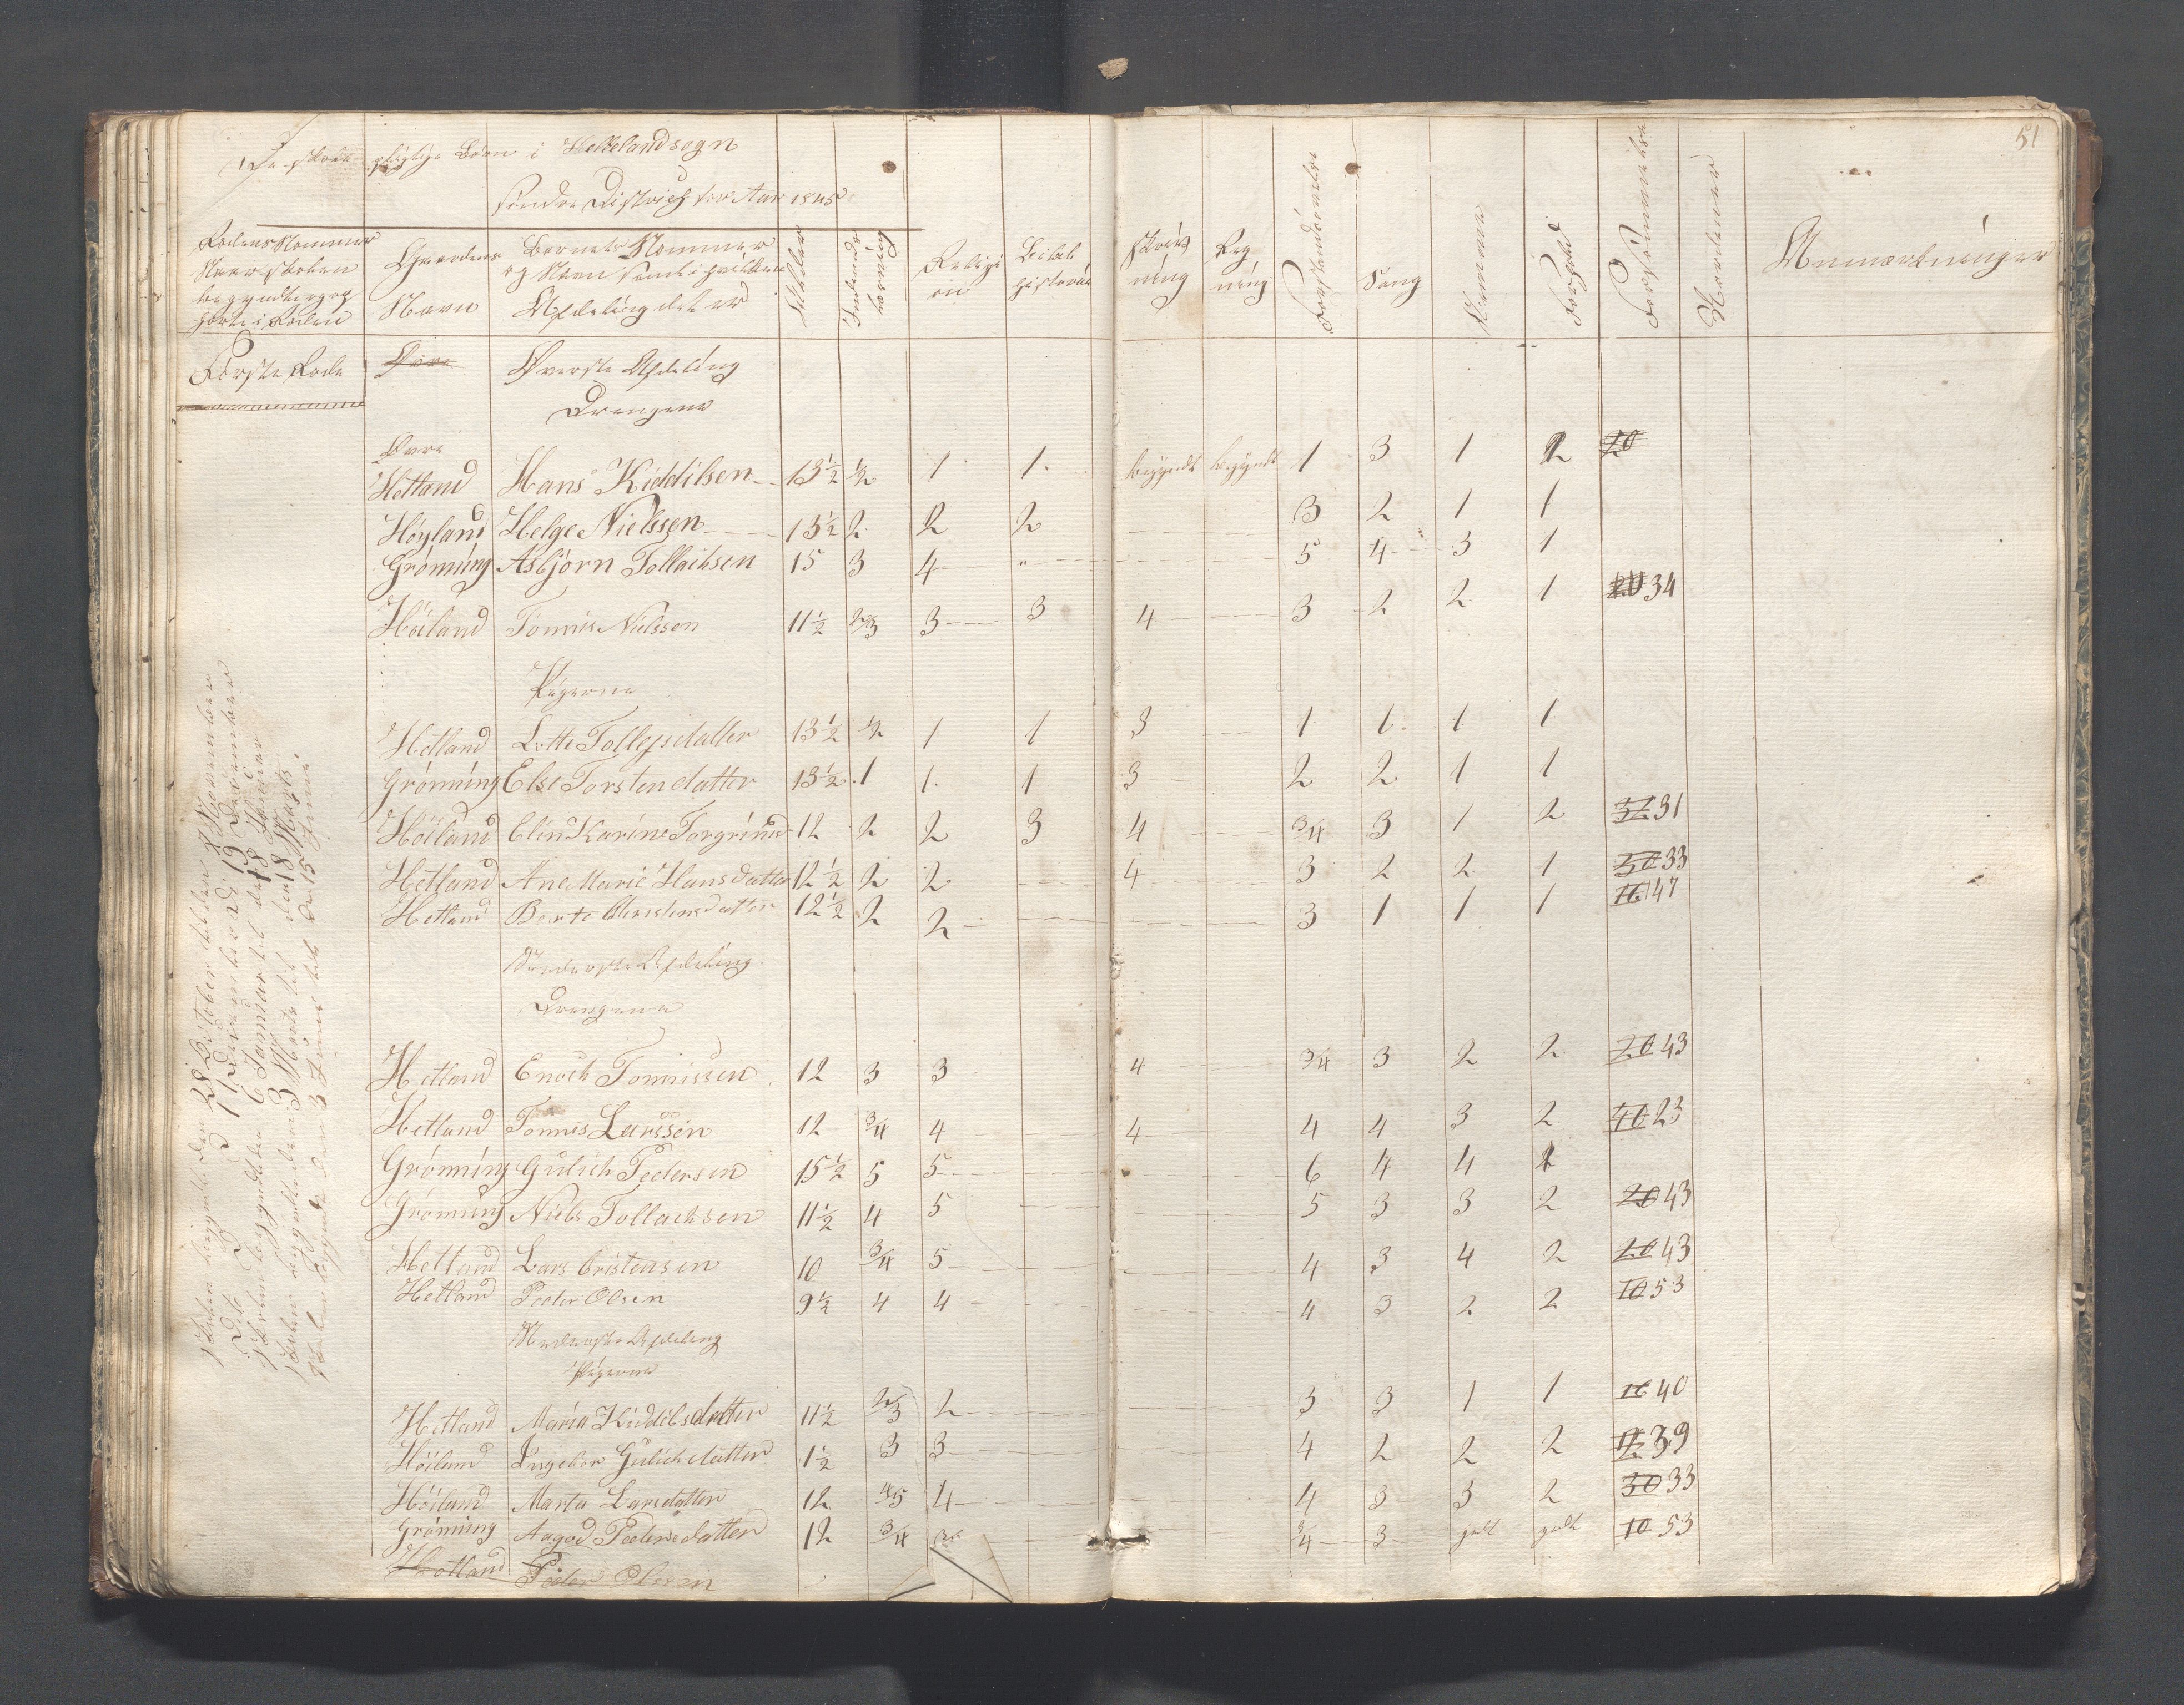 51
De skole pligtige Børn i Hellelandsogn
søndre District for Aar 1845
Rodens Nommer
Naar skolen
begyndte og op
hørte i Roden
Gaardens
Navn
Barnets Nommer
og Navn samt i hvilken
Afdeling det er
Alder
Indends
læsning
Religi
on
Bibel
historie
skriv
ning
Reg
ning
Forstandsøvelse
Sang
Nemme
Forhold
Forsømmelse
Anmærkninger
Første Rode
Øvre
Øverste Afdeling
Drengene
Øvre
Hetland Hans Kiddilsen 13 1/2 1/2 1 1. begyndt begyndt 1 3 1 2 20
Höyland Helge Nielssen 13 1/2 2 2 2 3 2 1 1
Grönning Asbjörn Tollachsen 15 3 4 " 5 4 3 1
Höiland Tönnis Nielssen 11 1/2 2/3 3 3 4 3 2 2 1 20 34
Pigerne
Hetland Lotte Tollefsdatter 13 1/2 1/2 1 1 3 1 1 1 1
Grönning Else Torstendatter 13 1/2 1 1 1 3 2 2 1 1
Höiland Elen Karine Torgrimsd 12 2 2 3 4 3/4 3 1 2 32 31
Hetland Ane Marie Hansdatter 12 1/2 2 2 4 3 2 2 1 50 33
Hetland Berte Christensdatter 12 1/2 2 2 3 1 1 1 16 47
Nederste Afdeling
Drengene
Hetland Enoch Tönnissen 12 3 3 4 3/4 3 2 2 20 43
Hetland Tönnes Larssen 12 3/4 4 4 4 4 3 2 40 23
Grönning Gulich Pedersen 15 1/2 5 5 6 4 4 1
Grönning Niels Tollachsen 11 1/2 4 5 5 3 3 2 20 43
Hetland Lars Cristensen 10 3/4 5 4 3 4 2 20 43
Hetland Peder Olsen 9 1/2 4 4 4 3 2 2 10 53
Nederste Afdeling
Pigerne
Hetland Maria Kiddilsdatter 11 1/2 2/3 2 3 3 1 1 16 40
Höiland Ingebor Gulichdatter 1 1/2 3 3 4 2 2 2 12 39
Höiland Marta Larsdatter 12 4/5 4 4 3 3 2 30 33
Grönning Aagod Pedersdatter 12 3/4 3/4 3 godt godt 10 53
Hetland Peder Olsen
Skolen begyndte den 28 October til den 9 November
Dito D D 11 December D 19 December
Skolen begyndte den 6 Januar til den 18 Januar
Skolen begyndte den 3 Marts til den 18 Marts
Skolen begyndte den 3 Juni til den 15 Juni